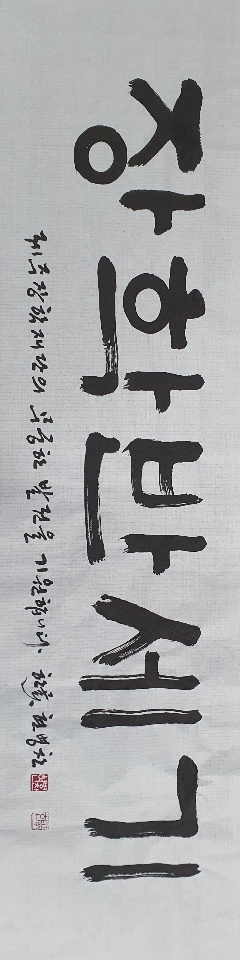 장학반세기
제주장학재단의 무궁한 발전을 기원합니다. 한곬 현병찬